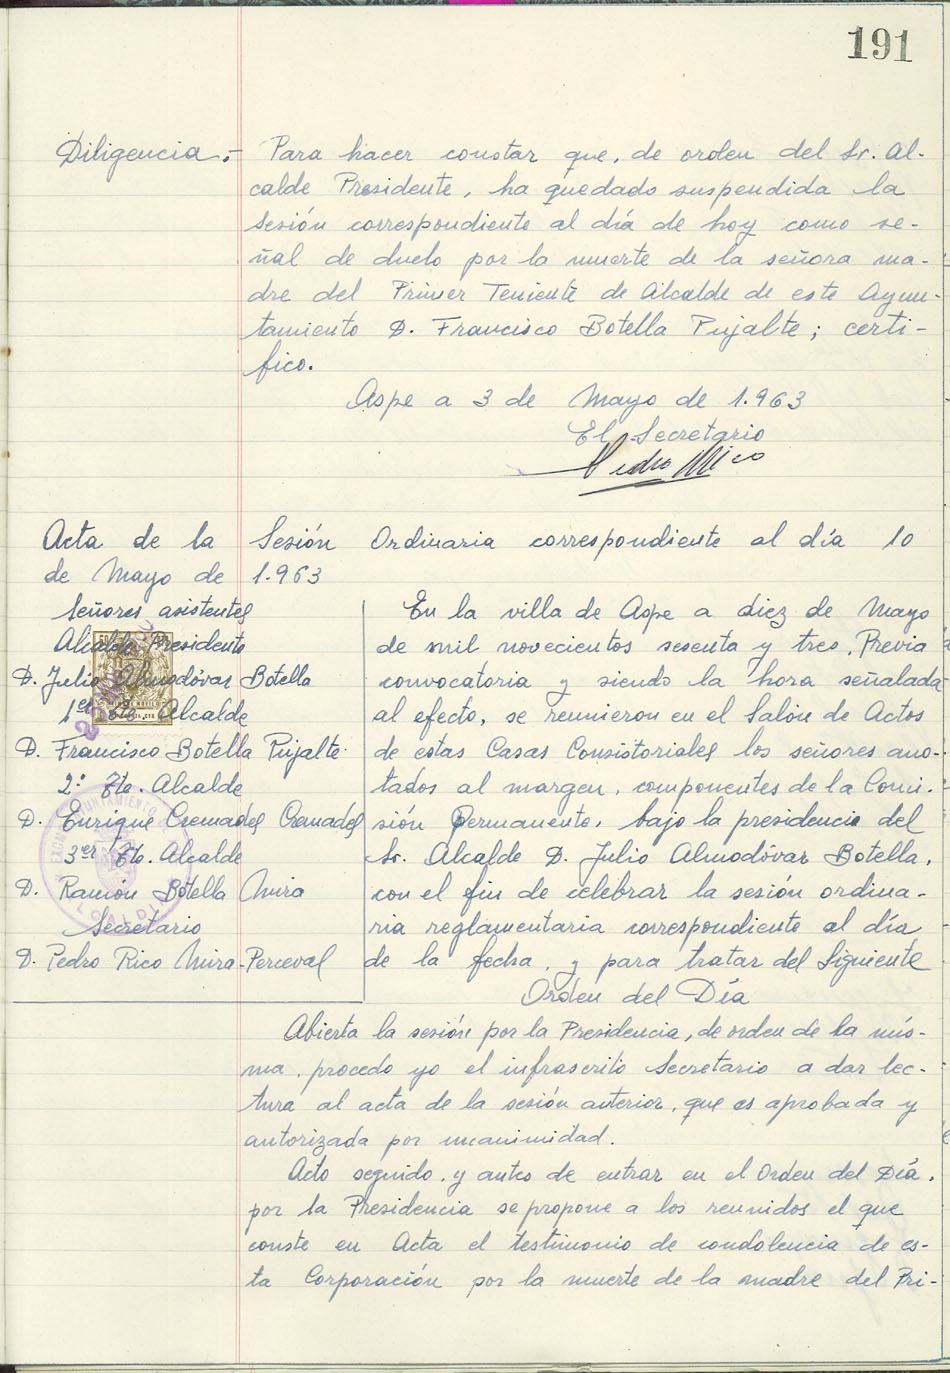 191
Diligencia.- Para hacer constar que, de orden del Sr. Al-
calde Presidente, ha quedado suspendida la
Sesión correspondiente al día de hoy como se-
ñal de duelo por la muerte de la señora ma-
dre del Primer Teniente de Alcalde de este Ayun-
tamiento D. Francisco Botella Pujalte; certi-
fico.
Aspe a 3 de Mayo de 1.963
El Secretario
Pedro Rico
Acta de la Sesión Ordinaria correspondiente al día 10
de Mayo de 1.963
Señores asistentes
Alcalde Presidente
D. Julio Almodóvar Botella
1er Tte. Alcalde
D. Francisco Botella Pujalte.
2º Tte. Alcalde
D. Enrique Cremades Cremades
3er Tte. Alcalde
D. Ramón Botella Mira
Secretario
D. Pedro Rico Mira-Perceval
En la villa de Aspe a diez de Mayo
de mil novecientos sesenta y tres, Previa
convocatoria y siendo la hora señalada
al efecto, se reunieron en el Salón de Actos
de estas Casas Consistoriales los señores ano-
tados al margen, componentes de la Comi-
sión Permanente, bajo la presidencia del
Sr. Alcalde D. Julio Almodóvar Botella,
con el fin de celebrar la sesión ordina-
ria reglamentaria correspondiente al día
de la fecha, y para tratar del Siguiente
Orden del Día
Abierta la sesión por la Presidencia, de orden de la mis-
ma, procedo yo el infrascrito Secretario a dar lec-
tura al acta de la sesión anterior, que es aprobada y
autorizada por unanimidad.
Acto seguido, y antes de entrar en el Orden del Día,
por la Presidencia se propone a los reunidos el que
conste en Acta el testimonio de condolencia de es-
ta Corporación por la muerte de la madre del Pri-